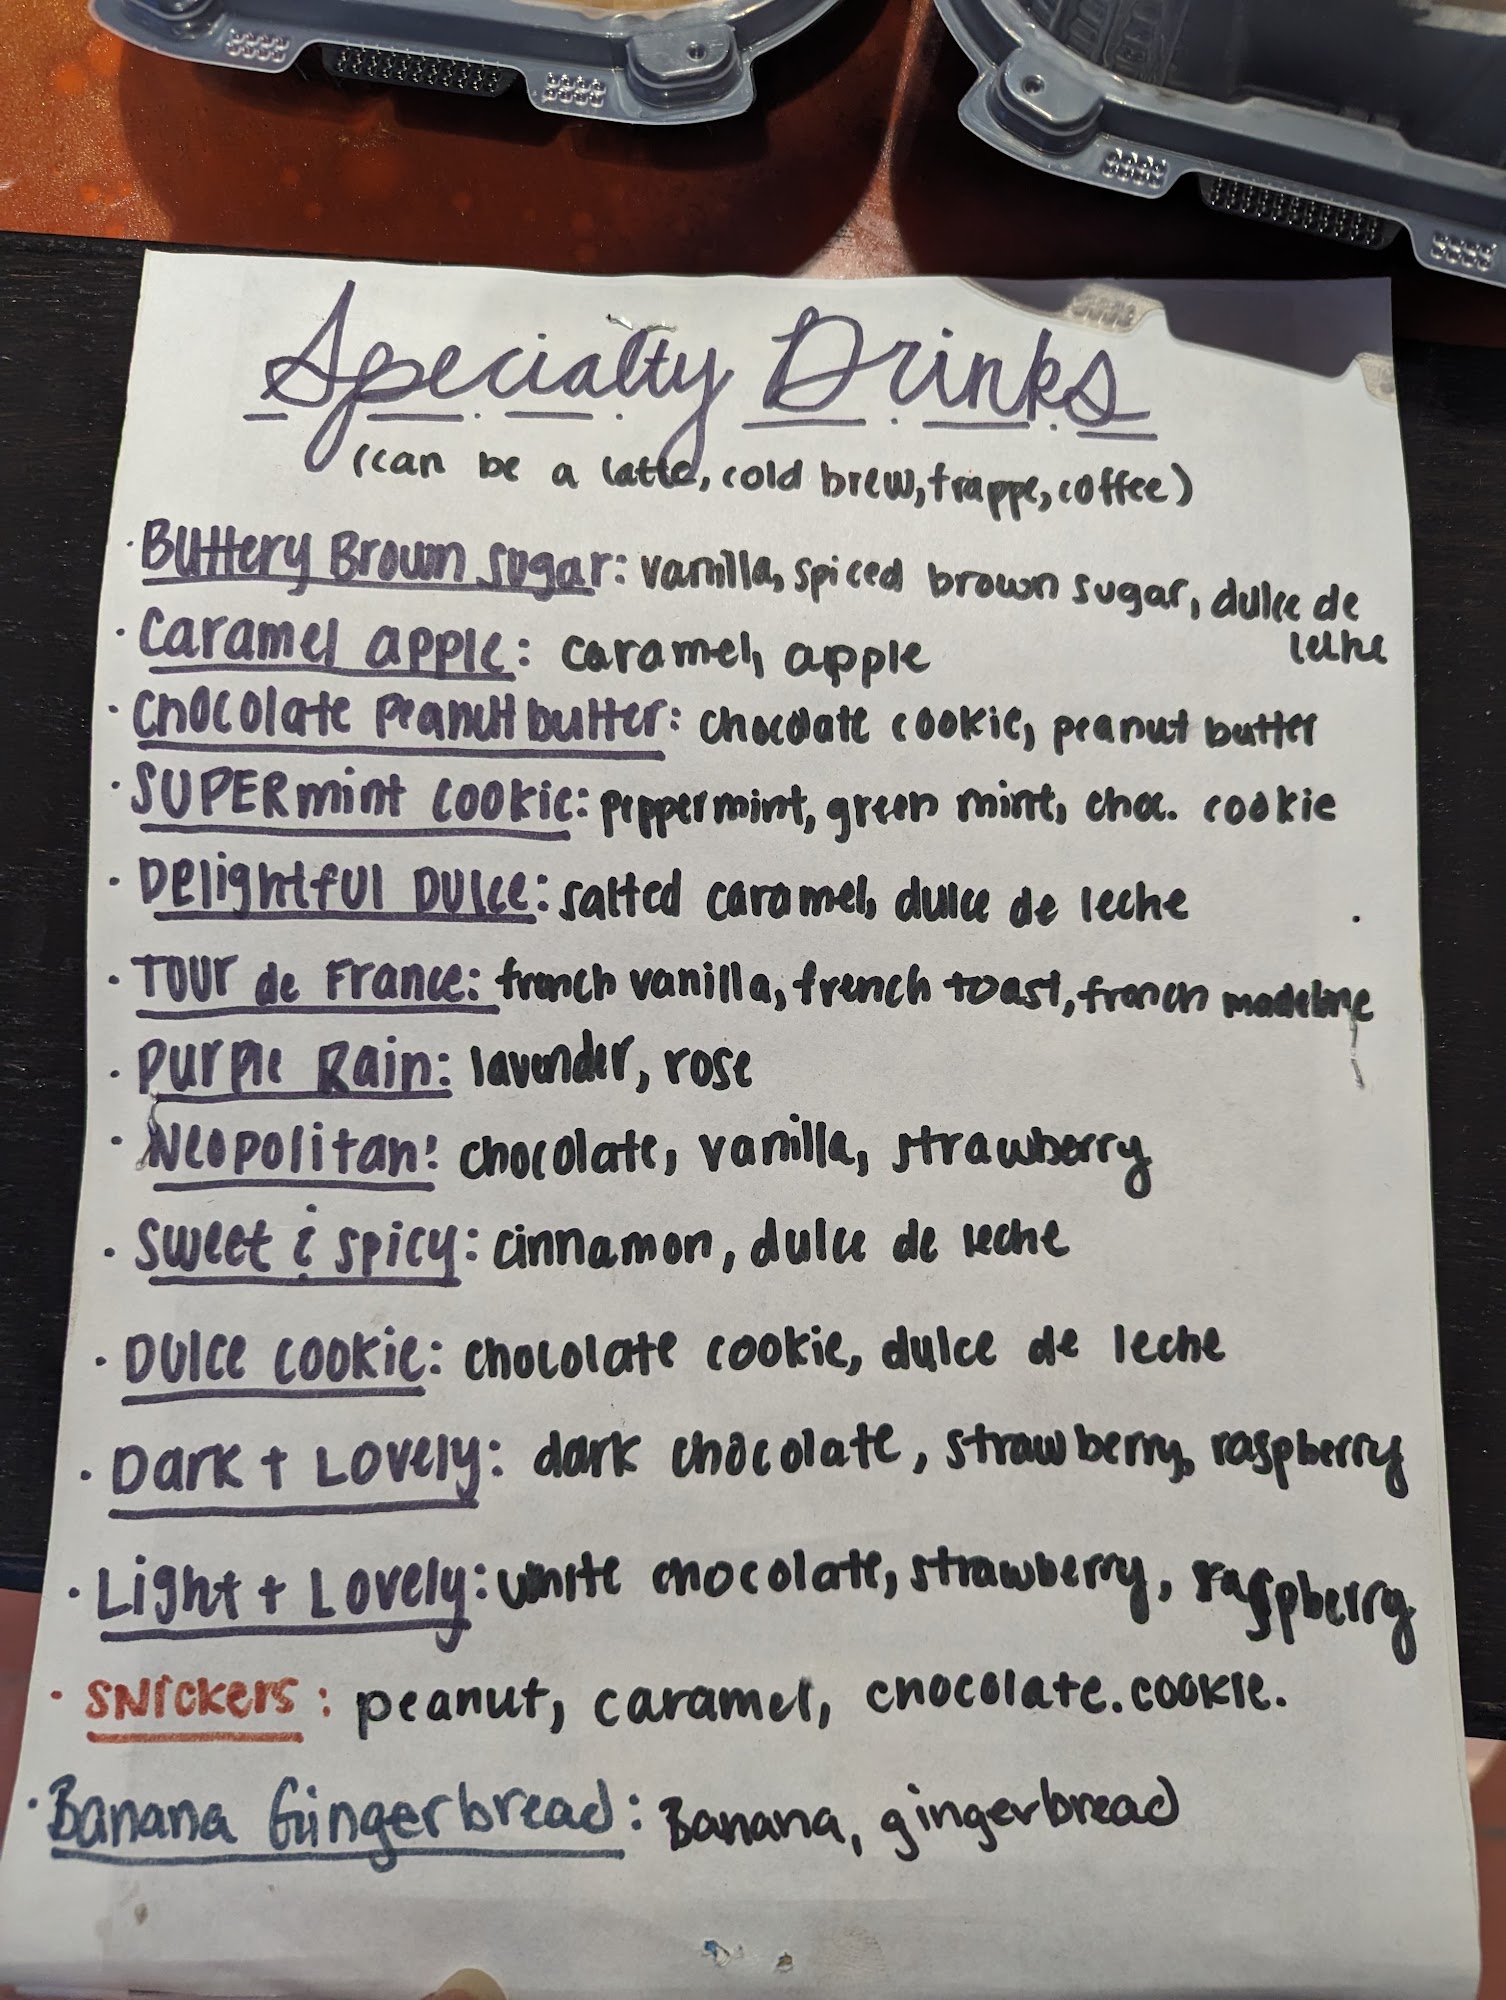 Specialty Drinks
(can be a latte, cold brew, frappe, coffee)
· Buttery Brown Sugar: vanilla, spiced brown sugar, dulce de
leche
· Caramel apple: caramel, apple
· Chocolate Peanut butter: chocolate cookie, peanut butter
· SUPERmint Cookie: peppermint, green mint, choc. cookie
· Delightful Dulce: salted caramel, dulce de leche
· Tour de France: french vanilla, french toast, french madeline
· Purple Rain: lavender, rose
· Neopolitan: chocolate, vanilla, strawberry
· Sweet & Spicy: cinnamon, dulce de leche
· Dulce Cookie: chocolate cookie, dulce de leche
· Dark + Lovely: dark chocolate, strawberry, raspberry
· Light + Lovely: white chocolate, strawberry, raspberry
· SNickers: peanut, caramel, chocolate.cookie.
· Banana Gingerbread: Banana, gingerbread